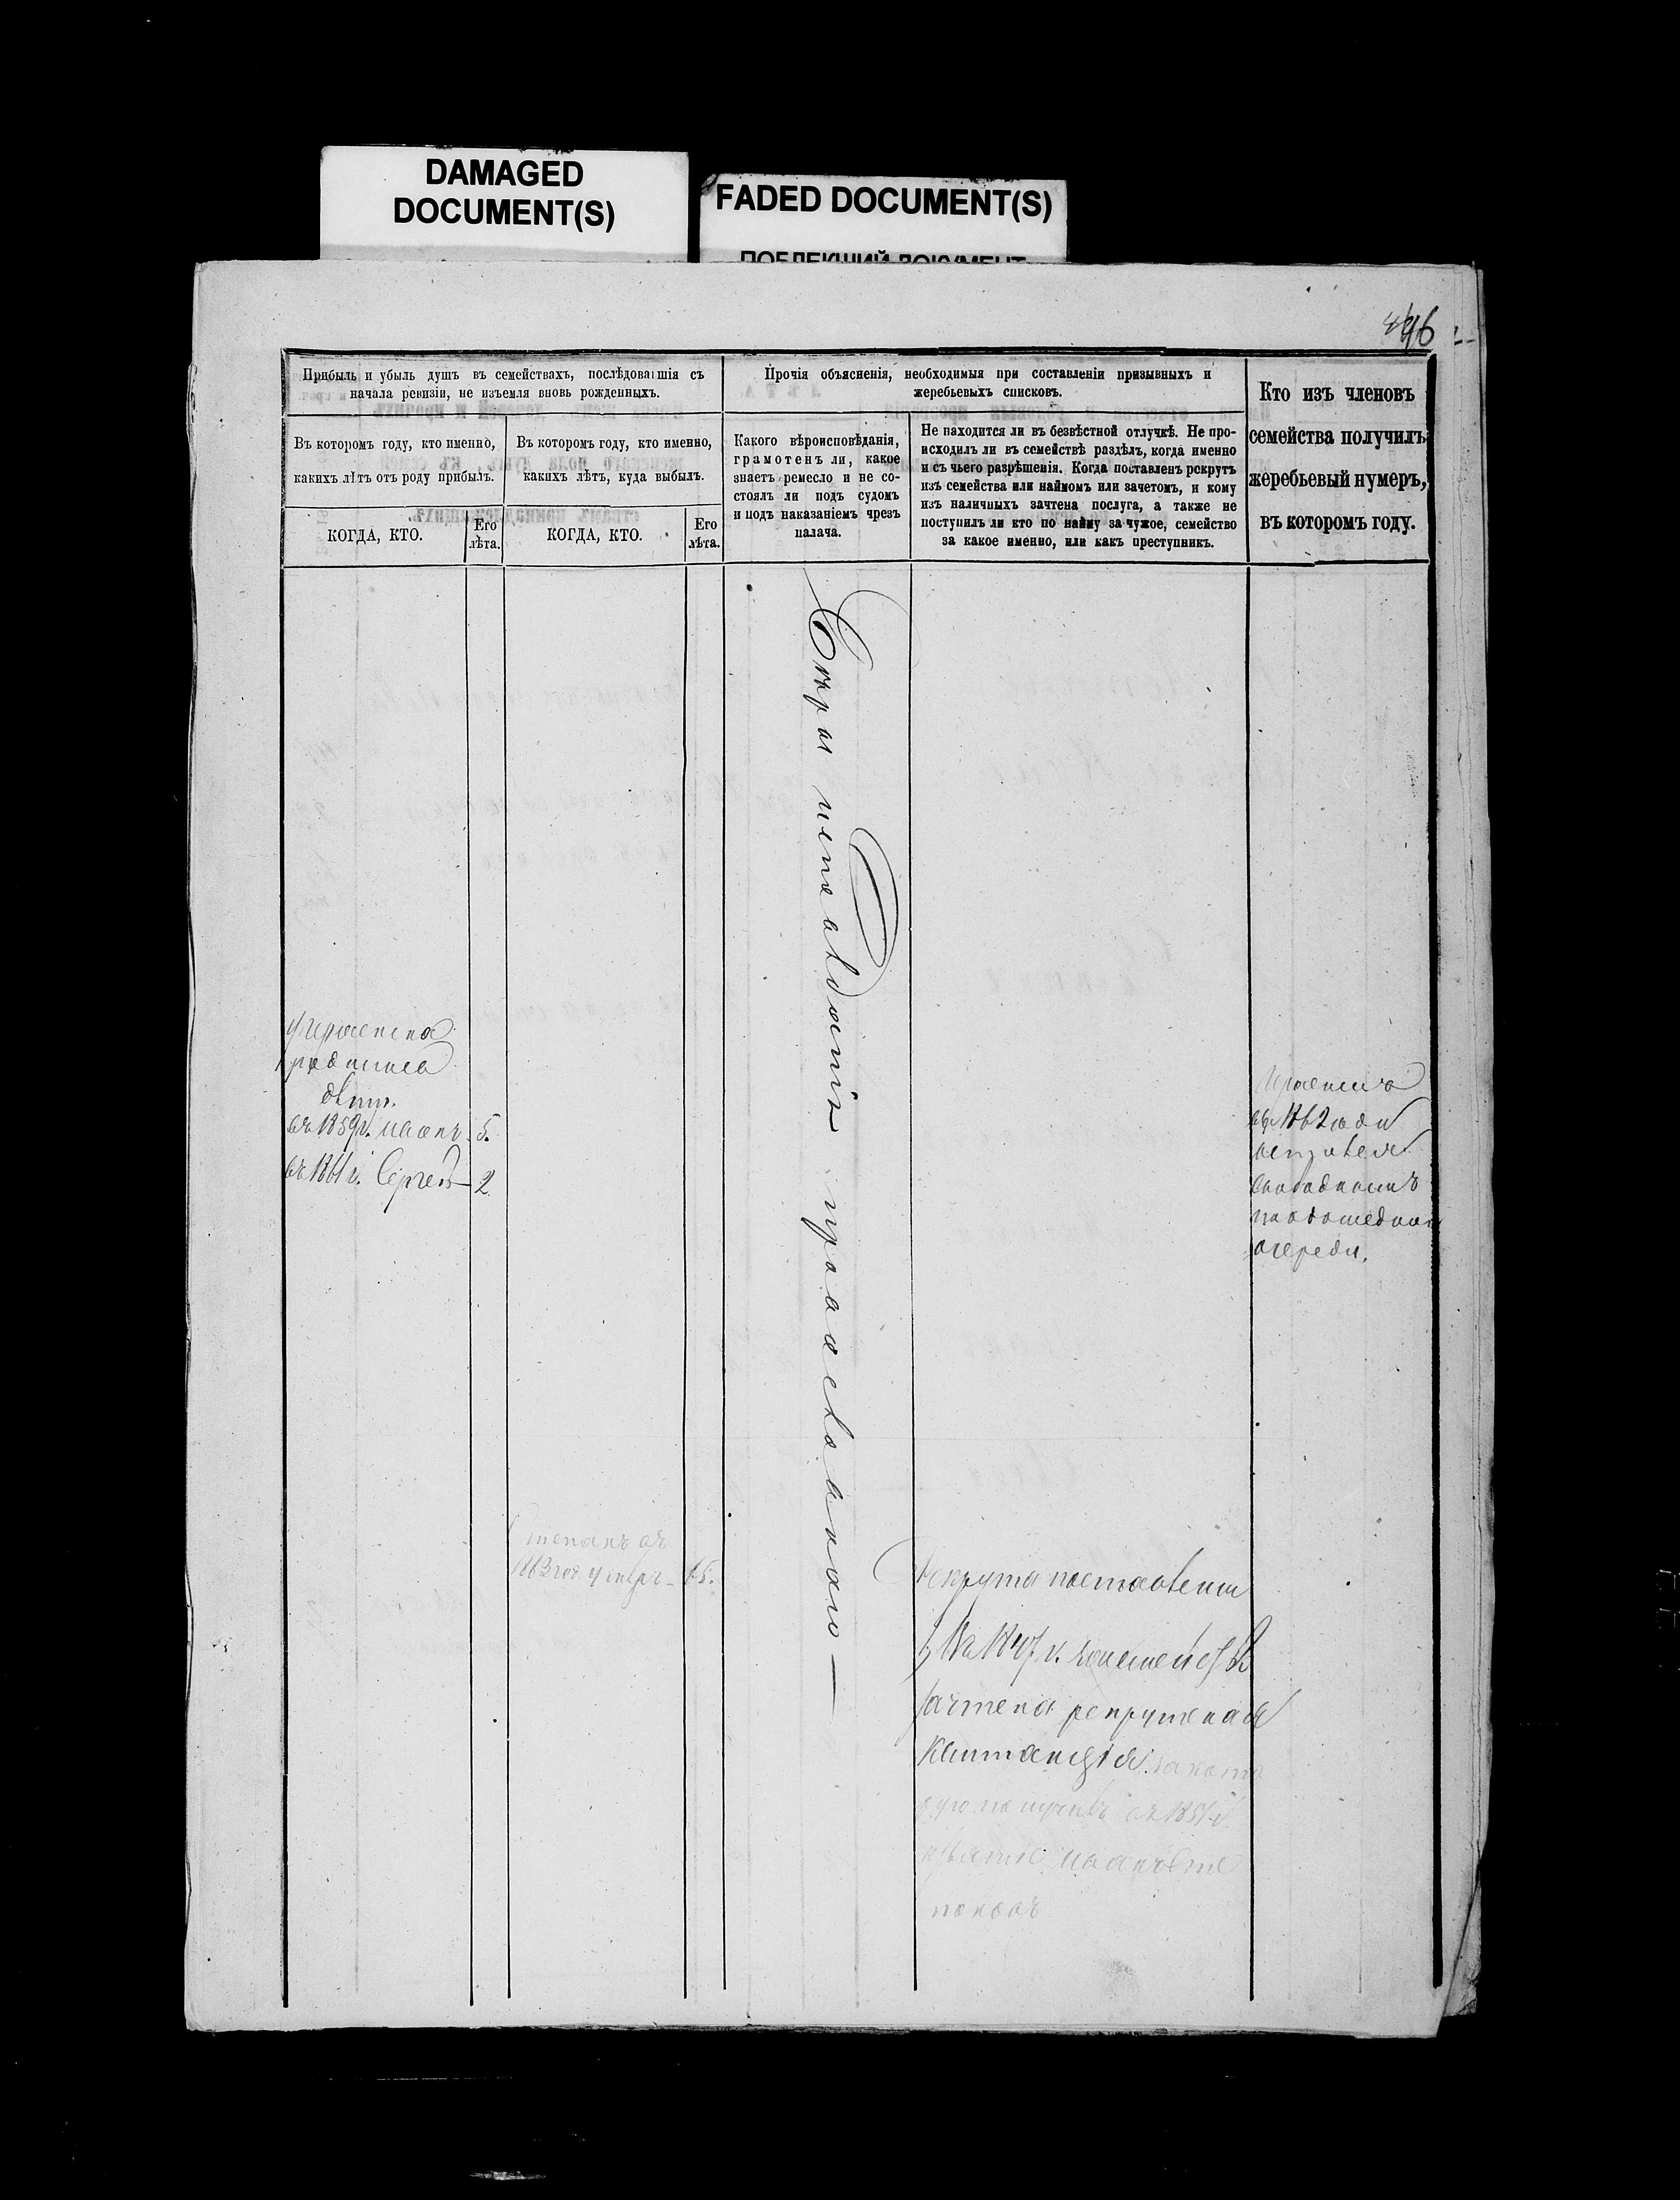 DAMAGED
DOCUMENT(S)
FADED DOCUMENT(S)
ПОБЛЕКШИЙ ДОКУМЕНТ
Прибыль и убыль душъ въ семействахъ, послѣдовавшія съ
начала ревизіи, не изъемля вновь рожденныхъ.
Прочія объясненія, необходимыя при составленіи призывныхъ и
жеребьевыхъ списковъ.
Кто изъ членовъ
семейства получилъ
жеребьевый нумеръ,
въ которомъ году.
Въ которомъ году, кто именно,
какихъ лѣтъ отъ роду прибылъ.
Въ которомъ году, кто именно,
какихъ лѣтъ, куда выбылъ.
Какого вѣроисповѣданія,
грамотенъ ли, какое
знаетъ ремесло и не со-
стоялъ ли подъ судомъ
и подъ наказаніемъ чрезъ
палача.
Не находится ли въ безвѣстной отлучкѣ. Не про-
исходилъ ли въ семействѣ раздѣлъ, когда именно
и съ чьего разрѣшенія. Когда поставленъ рекрутъ
изъ семейства или наймомъ или зачетомъ, и кому
изъ наличныхъ зачтена послуга, а также не
поступилъ ли кто по найму за чужое, семейство
за какое именно, или какъ преступникъ.
КОГДА, КТО.
Его
лѣта.
КОГДА, КТО.
Его
лѣта.
Вѣры исповѣданія православнаго
родились
дѣти.
въ 1859 г. Иванъ 5.
въ 1861 г. Сергей 2
въ 1862 году
свободнымъ
очереди.
Степанъ въ
1863 год. умеръ 65.
Рекрута поставлены
зачтена рекрутская
Квитанція